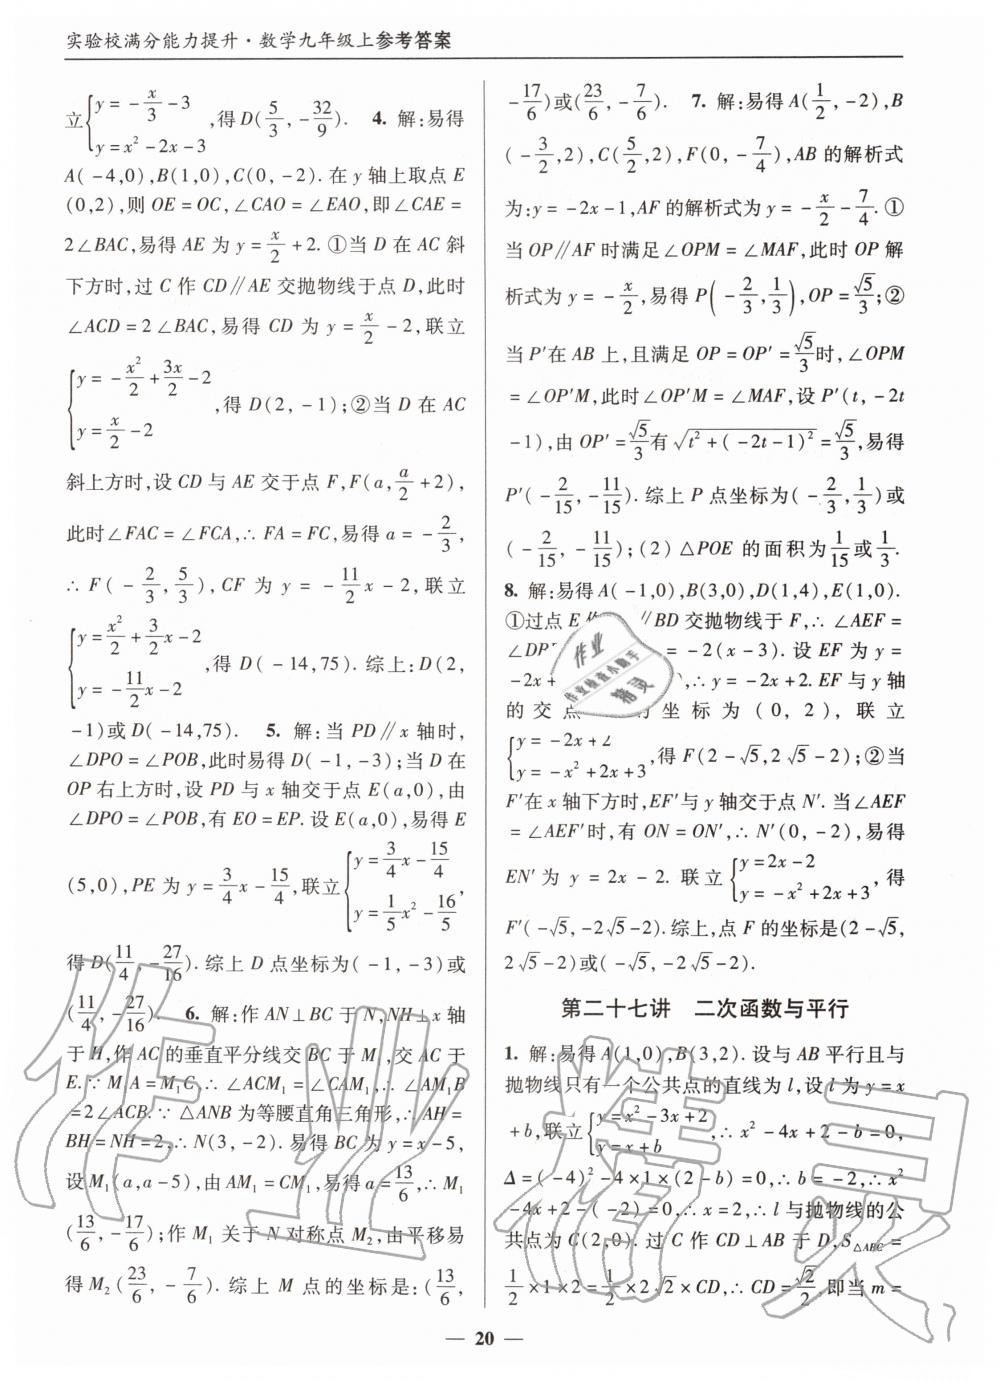 实验校满分能力提升·数学九年级上参考答案
立{y=-x/3-3, y=x²-2x-3, 得D(5/3, -32/9). 4. 解:易得
A(-4,0),B(1,0),C(0,-2). 在y轴上取点E
(0,2),则OE=OC,∠CAO=∠EAO,即∠CAE=
2∠BAC,易得AE为y=x/2+2. ①当D在AC斜
下方时,过C作CD∥AE交抛物线于点D,此时
∠ACD=2∠BAC,易得CD为y=x/2-2,联立
{y=-x²/2+3x/2-2, y=x/2-2, 得D(2,-1);②当D在AC
斜上方时,设CD与AE交于点F,F(a,a/2+2),
此时∠FAC=∠FCA,∴FA=FC,易得a=-2/3,
∴F(-2/3,5/3),CF为y=-11/2x-2,联立
{y=x²/2+3/2x-2, y=-11/2x-2, 得D(-14,75). 综上:D(2,
-1)或D(-14,75). 5. 解:当PD∥x轴时,
∠DPO=∠POB,此时易得D(-1,-3);当D在
OP右上方时,设PD与x轴交于点E(a,0),由
∠DPO=∠POB,有EO=EP. 设E(a,0),易得E
(5,0),PE为y=3/4x-15/4,联立{y=3/4x-15/4, y=1/5x²-16/5,
得D(11/4,-27/16). 综上D点坐标为(-1,-3)或
(11/4,-27/16). 6. 解:作AN⊥BC于N,NH⊥x轴
于H,作AC的垂直平分线交BC于M₁,交AC于
E.∵M₁A=M₁C,∴∠ACM₁=∠CAM₁,∴∠AM₁B
=2∠ACB.∵△ANB为等腰直角三角形,∴AH=
BH=NH=2,∴N(3,-2). 易得BC为y=x-5,
设M₁(a,a-5),由AM₁=CM₁,易得a=13/6,∴M₁
(13/6,-17/6);作M₁关于N对称点M₂,由平移易
得M₂(23/6,-7/6). 综上M点的坐标是:(13/6,
-17/6)或(23/6,-7/6). 7. 解:易得A(1/2,-2),B
(-3/2,2),C(5/2,2),F(0,-7/4),AB的解析式
为:y=-2x-1,AF的解析式为y=-x/2-7/4. ①
当OP∥AF时满足∠OPM=∠MAF,此时OP解
析式为y=-x/2,易得P(-2/3,1/3),OP=√5/3;②
当P′在AB上,且满足OP=OP′=√5/3时,∠OPM
=∠OP′M,此时∠OP′M=∠MAF,设P′(t,-2t
-1),由OP′=√5/3有√(t²+(-2t-1)²)=√5/3,易得
P′(-2/15,-11/15). 综上P点坐标为(-2/3,1/3)或
(-2/15,-11/15);(2)△POE的面积为1/15或1/3.
8. 解:易得A(-1,0),B(3,0),D(1,4),E(1,0).
①过点E作 ∥BD交抛物线于F,∴∠AEF=
=-2(x-3). 设EF为y=
-2x+ ,∴y=-2x+2. EF与y轴
的交点 坐标为(0,2),联立
{y=-2x+2, y=-x²+2x+3, 得F(2-√5,2√5-2);②当
F′在x轴下方时,EF′与y轴交于点N′. 当∠AEF
=∠AEF′时,有ON=ON′,∴N′(0,-2),易得
EN′为y=2x-2. 联立{y=2x-2, y=-x²+2x+3, 得
F′(-√5,-2√5-2). 综上,点F的坐标是(2-√5,
2√5-2)或(-√5,-2√5-2).
第二十七讲 二次函数与平行
1. 解:易得A(1,0),B(3,2). 设与AB平行且与
抛物线只有一个公共点的直线为l,设l为y=x
+b,联立{y=x²-3x+2, y=x+b, ∴x²-4x+2-b=0,
Δ=(-4)²-4×1×(2-b)=0,∴b=-2,∴x²
-4x+2-(-2)=0,∴x=2,∴l与抛物线的公
共点为C(2,0). 过C作CD⊥AB于D,S△ABC=
1/2×1×2=1/2×2√2×CD,∴CD=√2/2,即当m=
— 20 —
作业
作业检查小助手
精灵
作业精灵